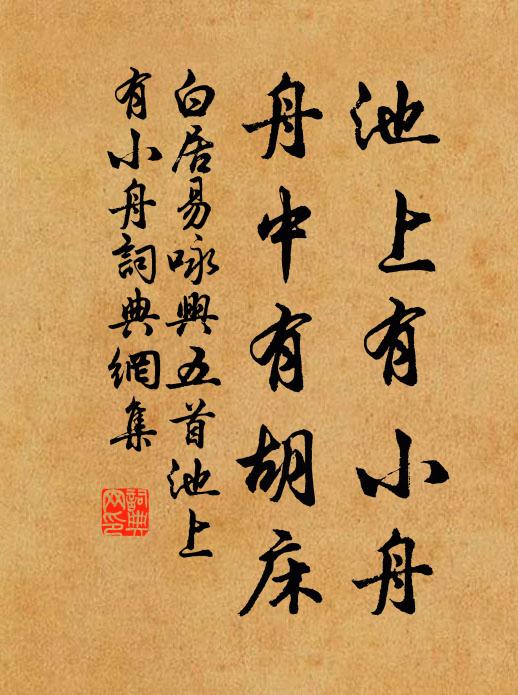 池上有小舟
舟中有胡床
白居易咏興五首池上
有小舟詞典網集
詞典
网印